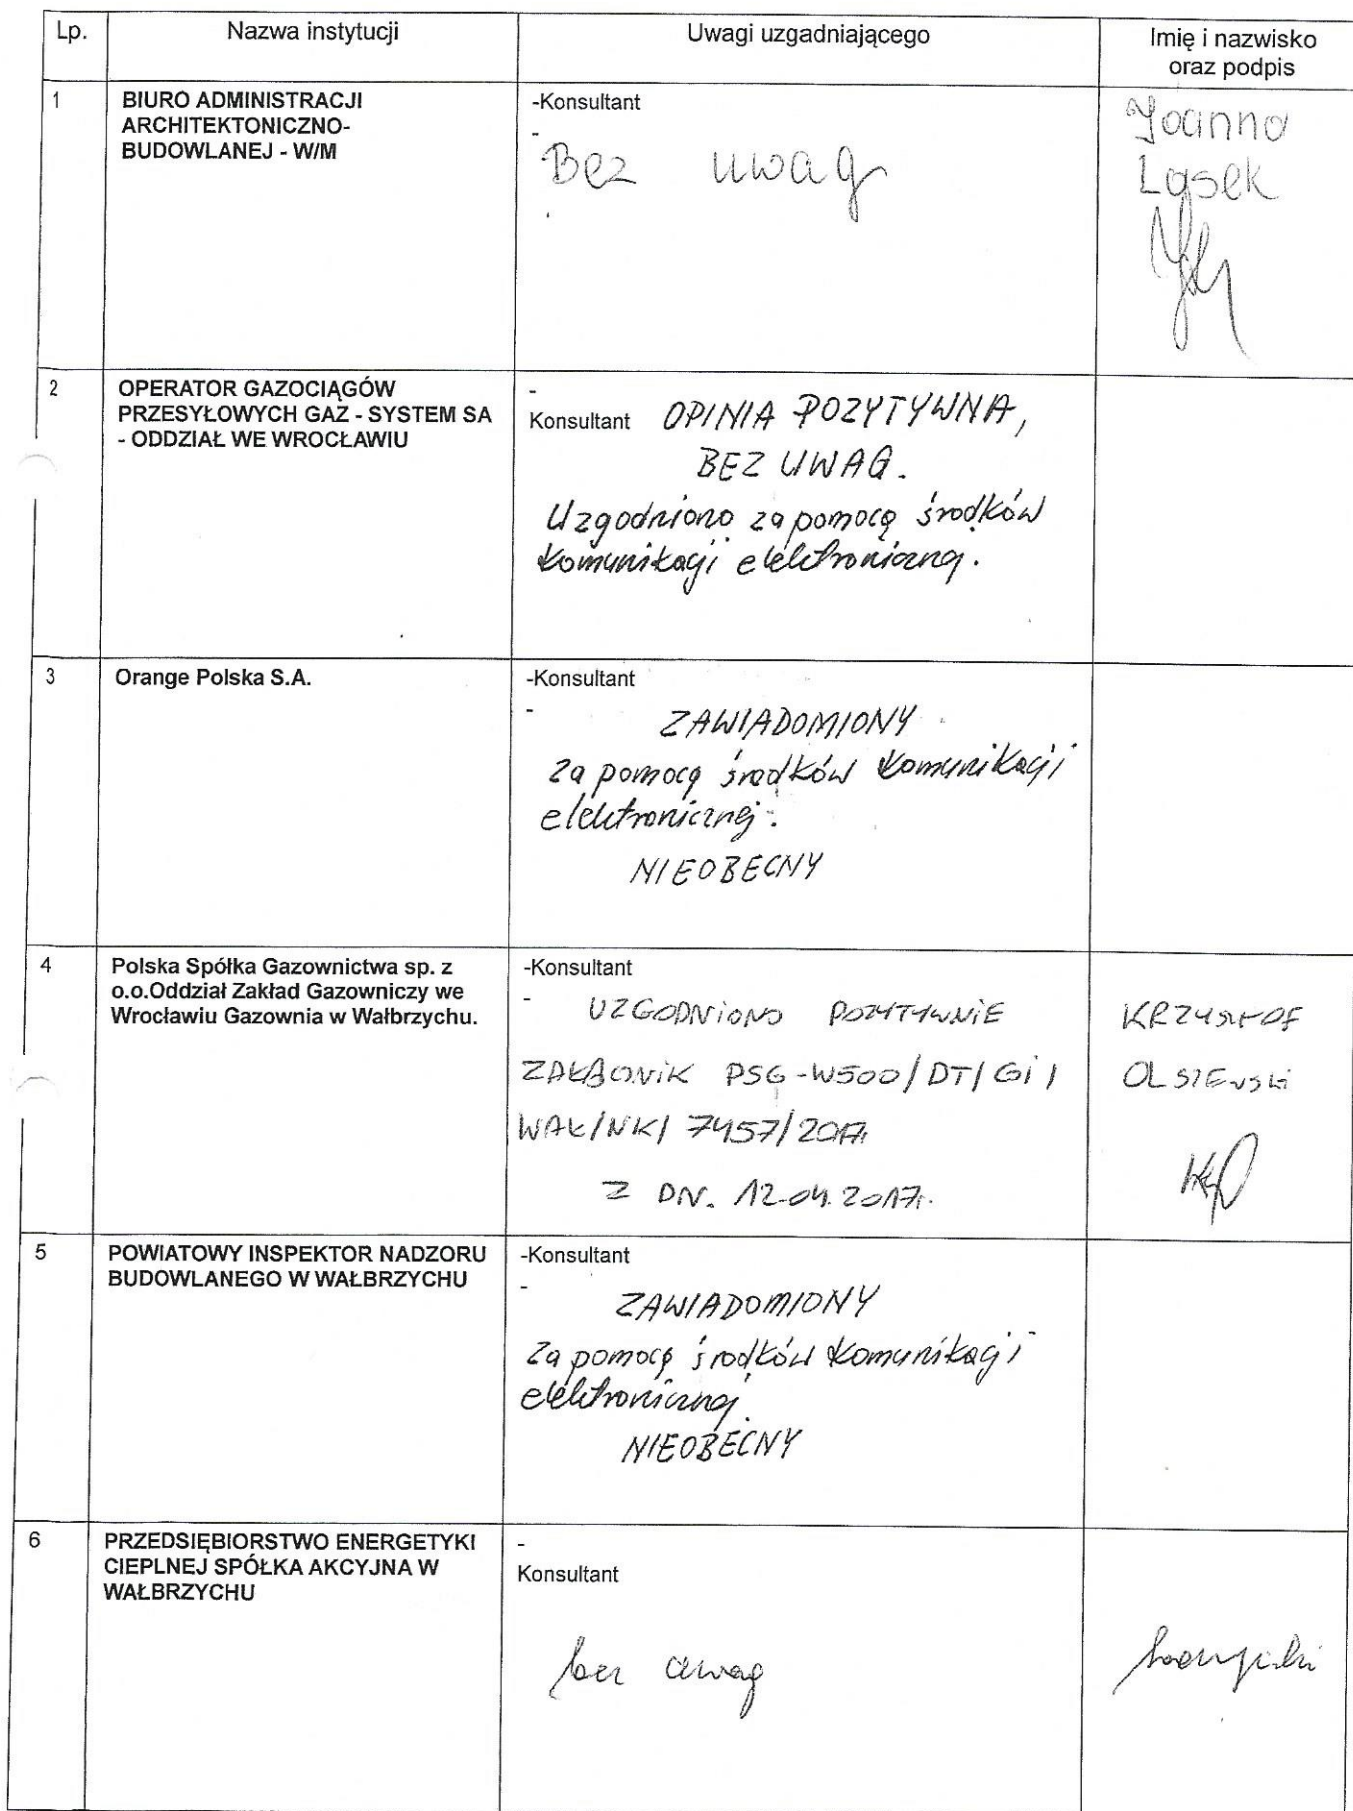 Lp.
Nazwa instytucji
Uwagi uzgadniającego
Imię i nazwisko
oraz podpis
1
BIURO ADMINISTRACJI
ARCHITEKTONICZNO-
BUDOWLANEJ - W/M
-Konsultant
-
Bez uwag
Joanna
Lasek
2
OPERATOR GAZOCIĄGÓW
PRZESYŁOWYCH GAZ - SYSTEM SA
- ODDZIAŁ WE WROCŁAWIU
-
Konsultant OPINIA POZYTYWNA,
BEZ UWAG.
Uzgodniono za pomocą środków
komunikacji elektronicznej.
3
Orange Polska S.A.
-Konsultant
-
ZAWIADOMIONY
za pomocą środków komunikacji
elektronicznej.
NIEOBECNY
4
Polska Spółka Gazownictwa sp. z
o.o.Oddział Zakład Gazowniczy we
Wrocławiu Gazownia w Wałbrzychu.
-Konsultant
- UZGODNIONO POZYTYWNIE
ZAŁĄCZNIK PSG-W500/DT/GI/
WAŁ/NK/ 7457/2017r
Z DN. 12.04.2017r.
KRZYSZTOF
OLSZEWSKI
5
POWIATOWY INSPEKTOR NADZORU
BUDOWLANEGO W WAŁBRZYCHU
-Konsultant
-
ZAWIADOMIONY
za pomocą środków komunikacji
elektronicznej.
NIEOBECNY
6
PRZEDSIĘBIORSTWO ENERGETYKI
CIEPLNEJ SPÓŁKA AKCYJNA W
WAŁBRZYCHU
-
Konsultant
bez uwag